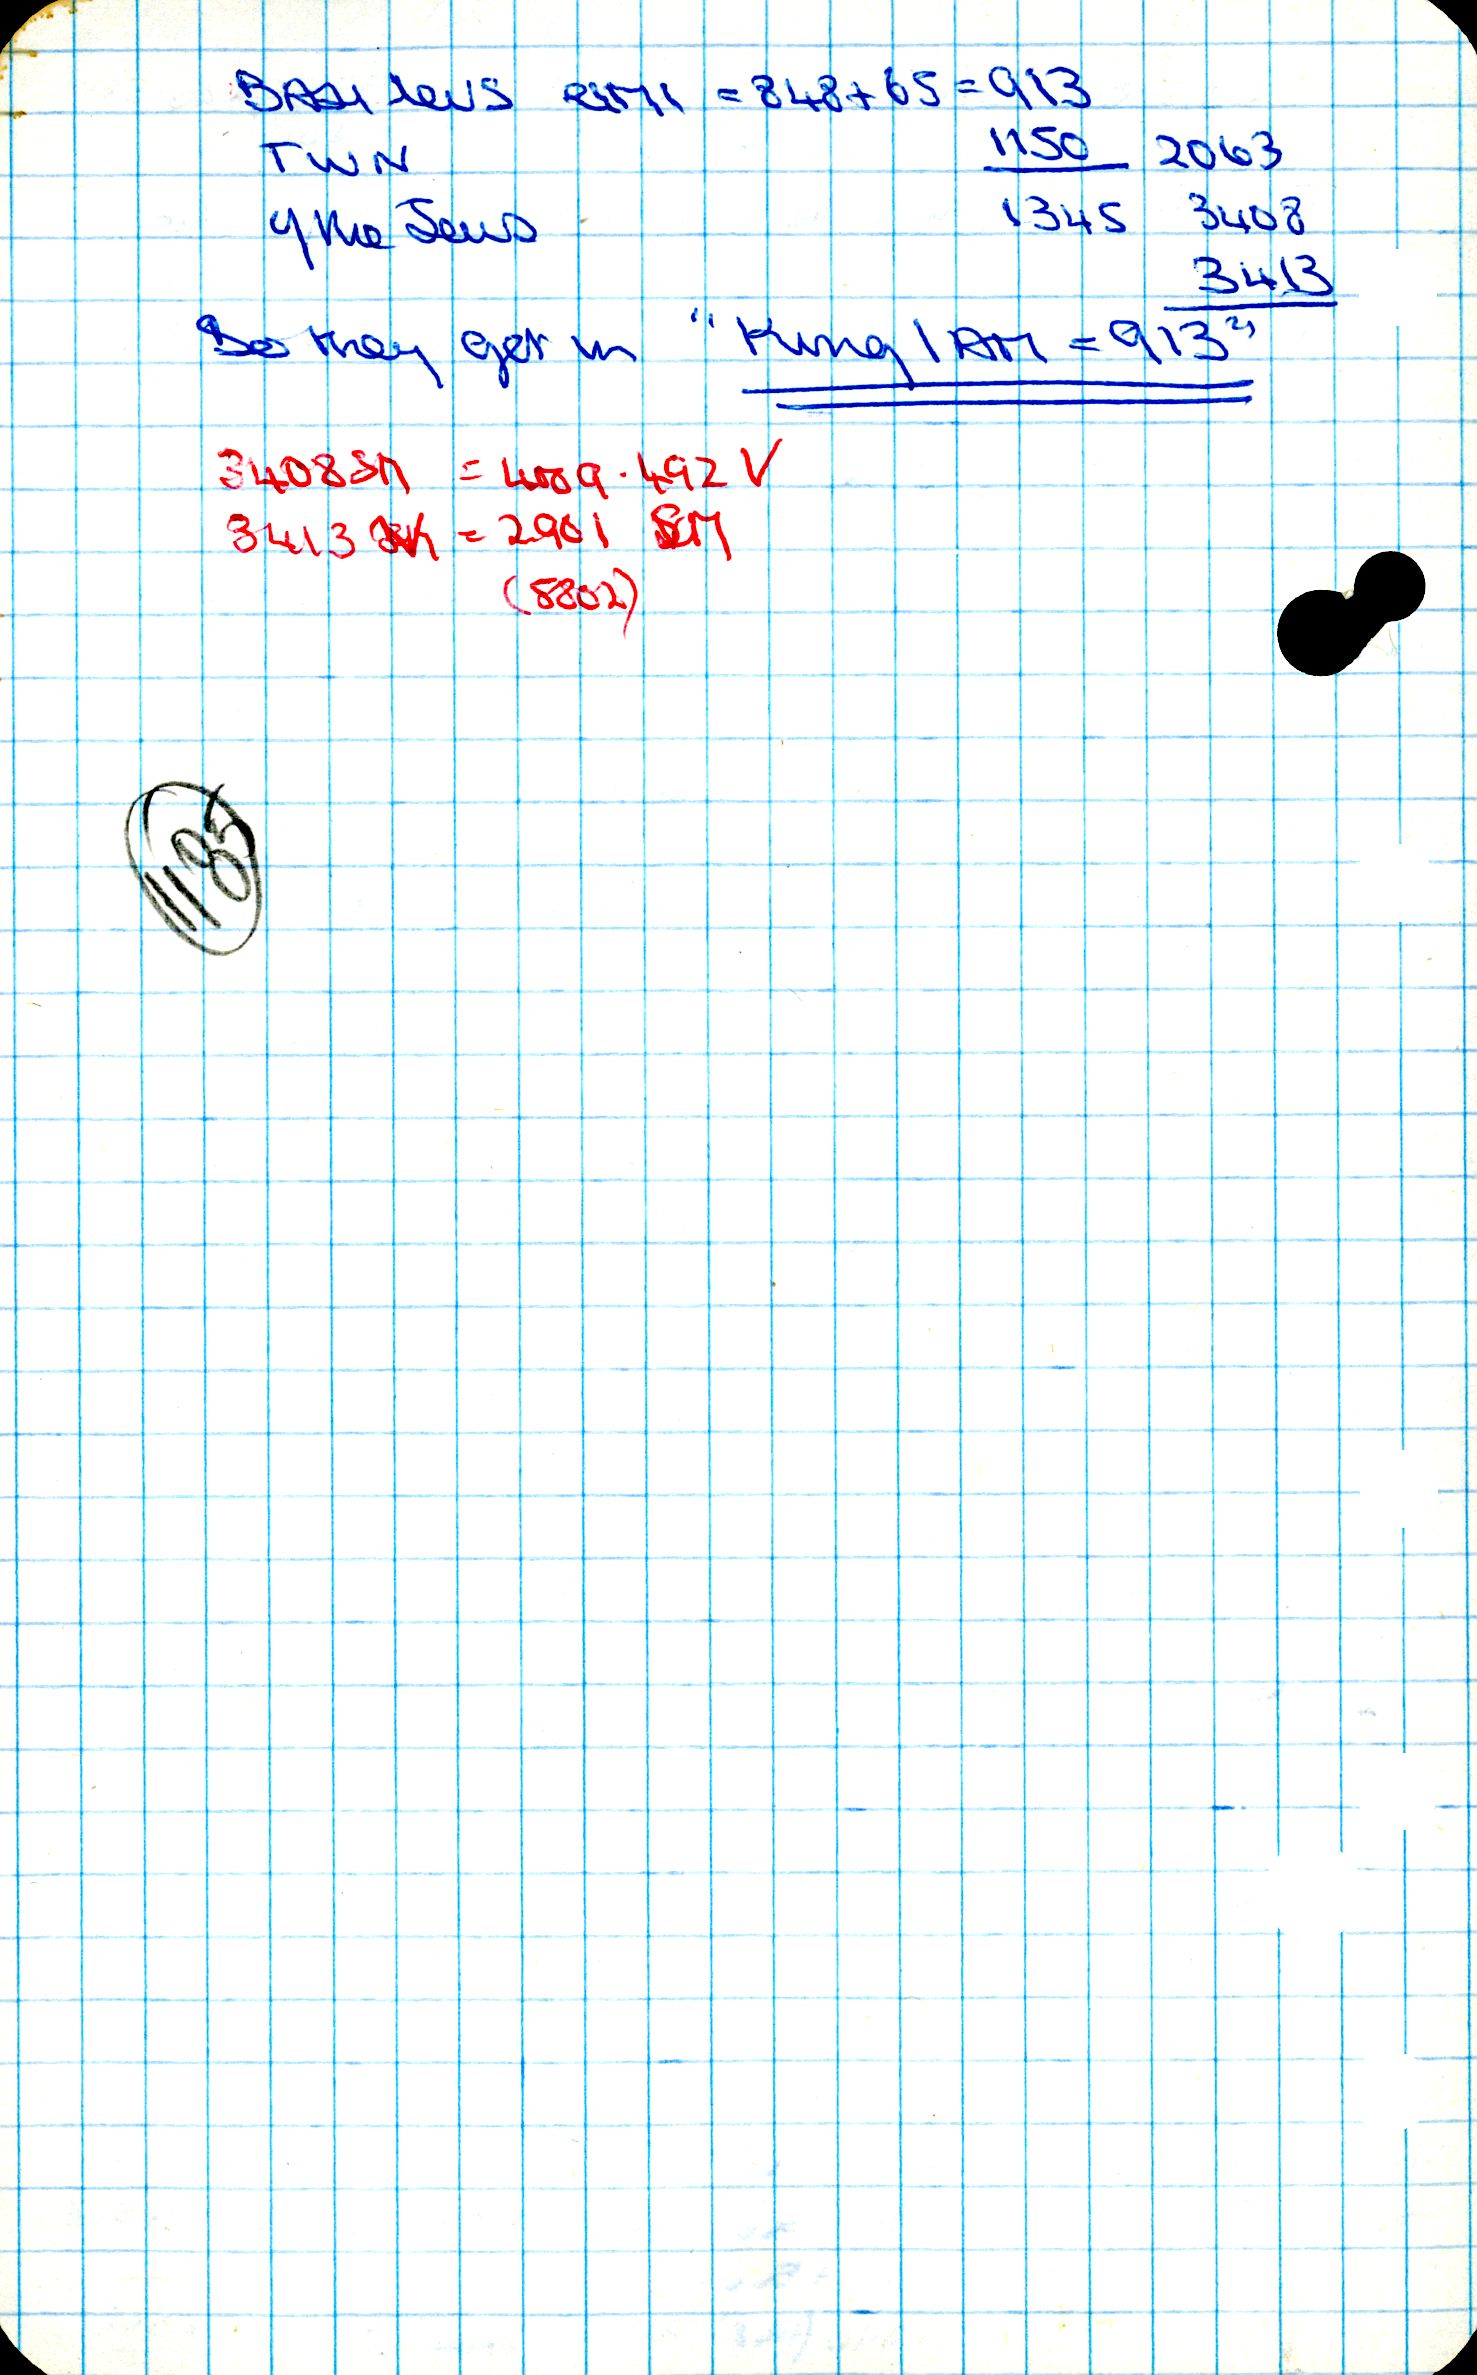 BASILeUS eimi = 848 + 65 = 913
TWN 1150 2063
of the Jews 1345 3408
3413
So they get in "King I AM = 913"
3408 SM = 4009.492 V
3413 = 2901 SM
(5802)
1185